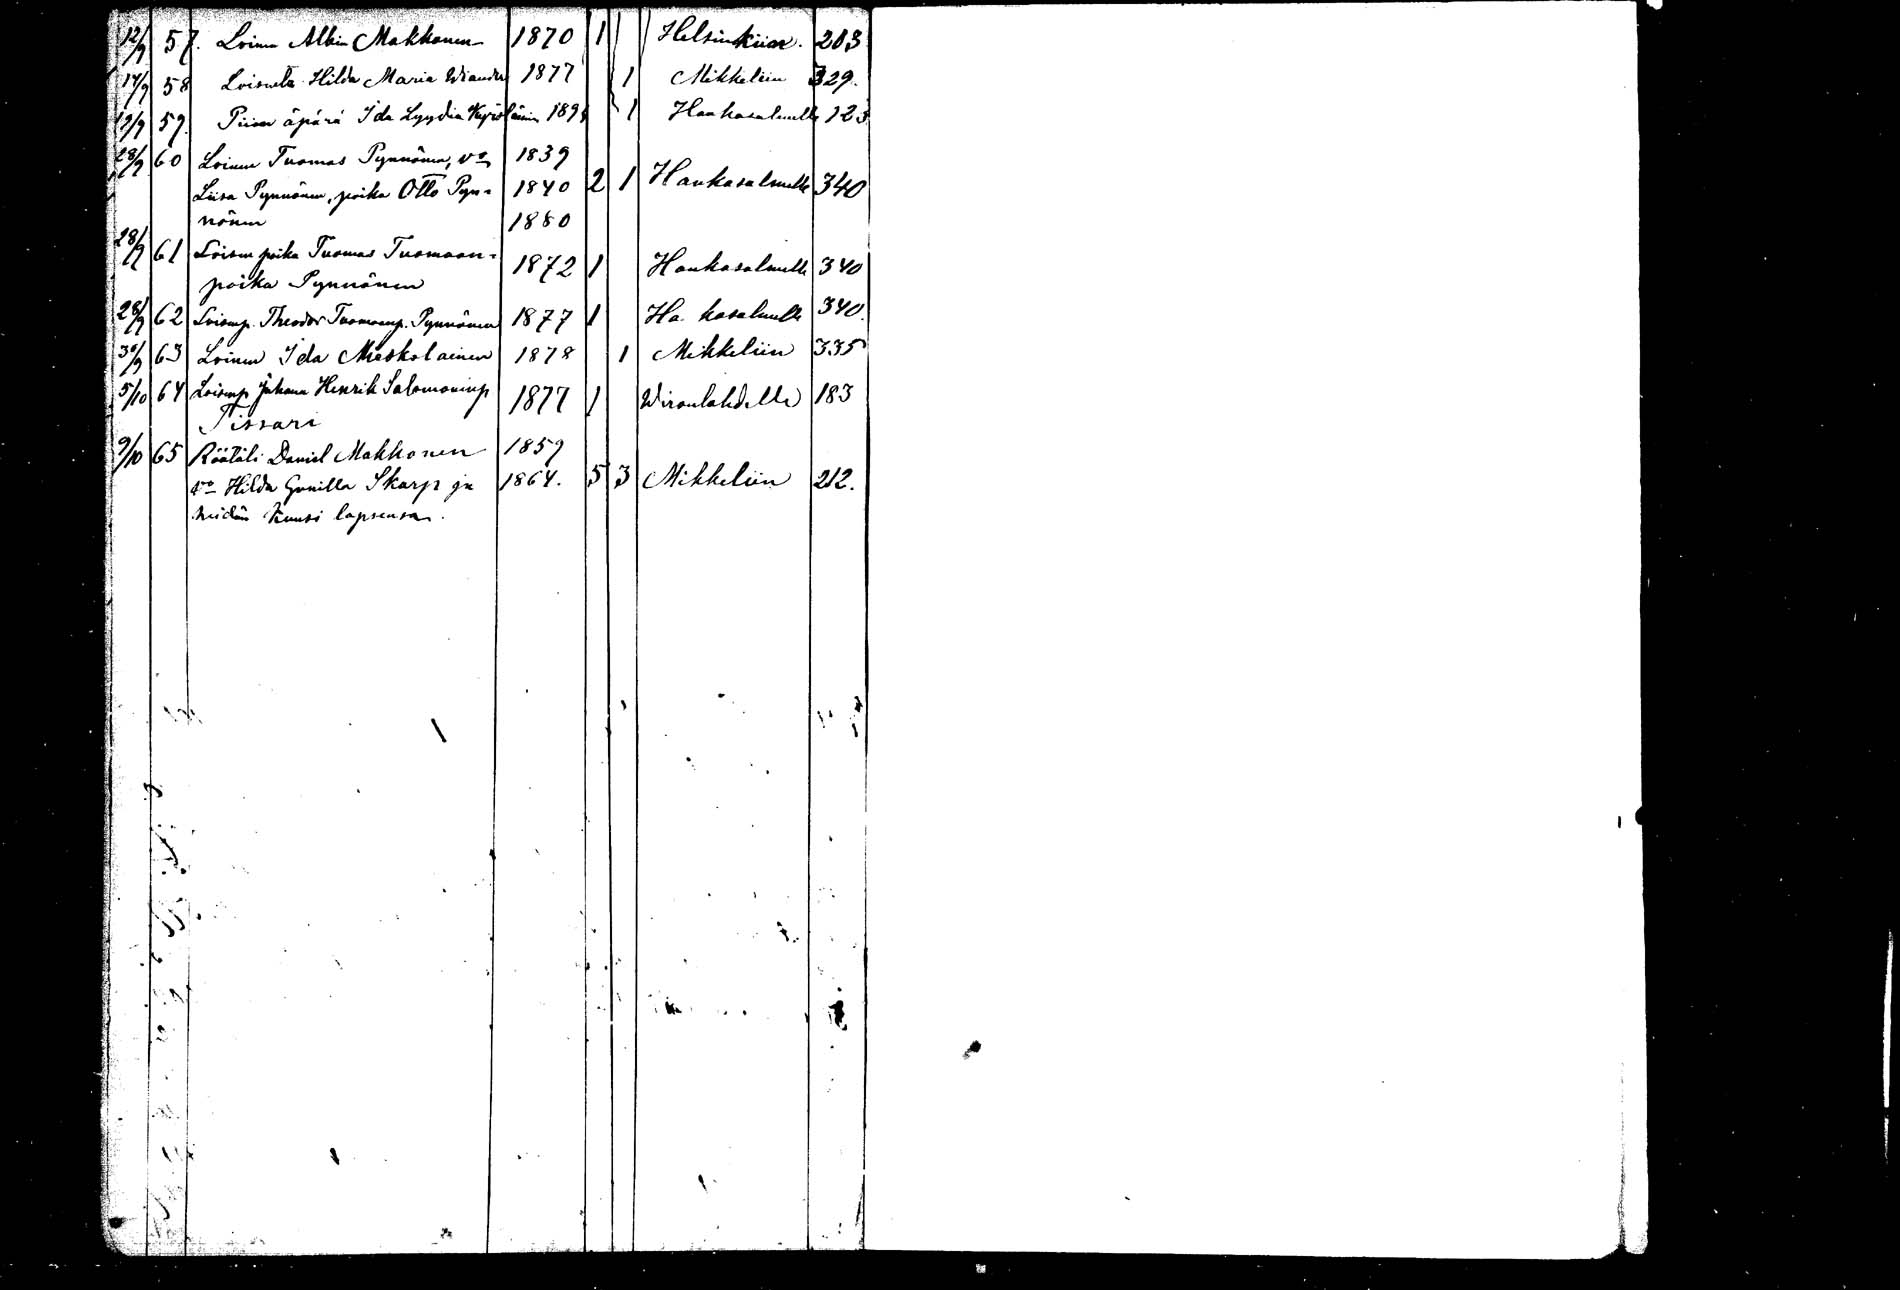 12/9 57. Loinen Albin Makkonen 1870 1 Helsinkiin. 203
17/9 58 Loisneits Hilda Maria Wiander 1877 1 Mikkeliin 329.
19/9 59. Piian äpärä Ida Lyydia 189 1 Hankasalmelle 123
28/9 60 Loinen Tuomas Pynnönen, vo 1839
Liisa Pynnönen, poika Otto Pyn- 1840 2 1 Hankasalmelle 340
nönen 1880
28/9 61 Loisen poika Tuomas Tuomaan-
poika Pynnönen 1872 1 Hankasalmelle 340
28/9 62 Loisenp. Theodor Tuomaanp. Pynnönen 1877 1 Ha kasalmelle 340.
30/9 63 Loinen Ida Mieskolainen 1878 1 Mikkeliin 335
5/10 64 Loisenp Juhana Henrik Salomoninp 1877 1 Wironlahdelle 183
Tissari
9/10 65 Räätäli Daniel Makkonen 1859
vo Hilda Gunilla Skarp ja 1864. 5 3 Mikkeliin 212.
heidän kuusi lapsensa.